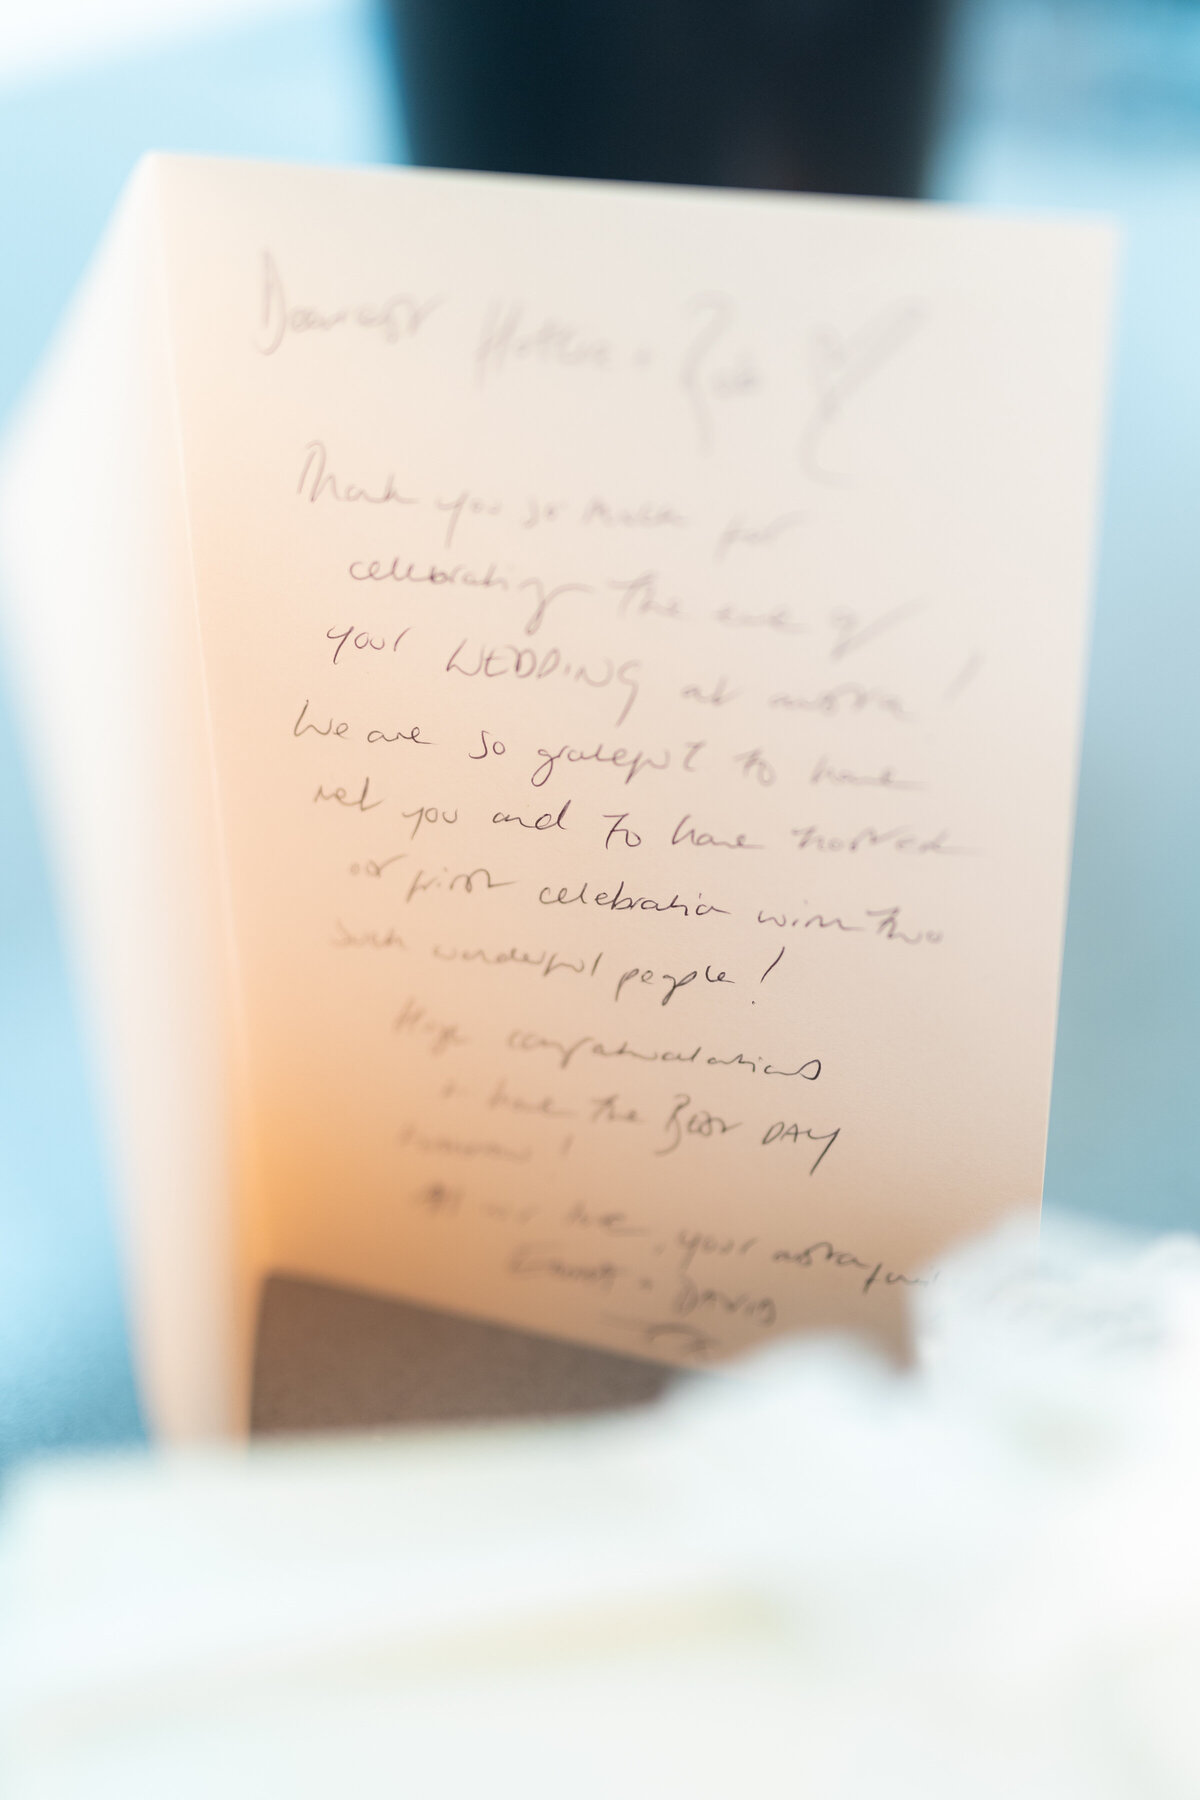 Dearest Hattie + Rob
Thank you so much for
celebrating the eve of
your WEDDING at !
We are so grateful to have
met you and to have hosted
our first celebration with two
such wonderful people!
Huge congratulations
+ have the BEST DAY
tomorrow!
All our love, your
+ David